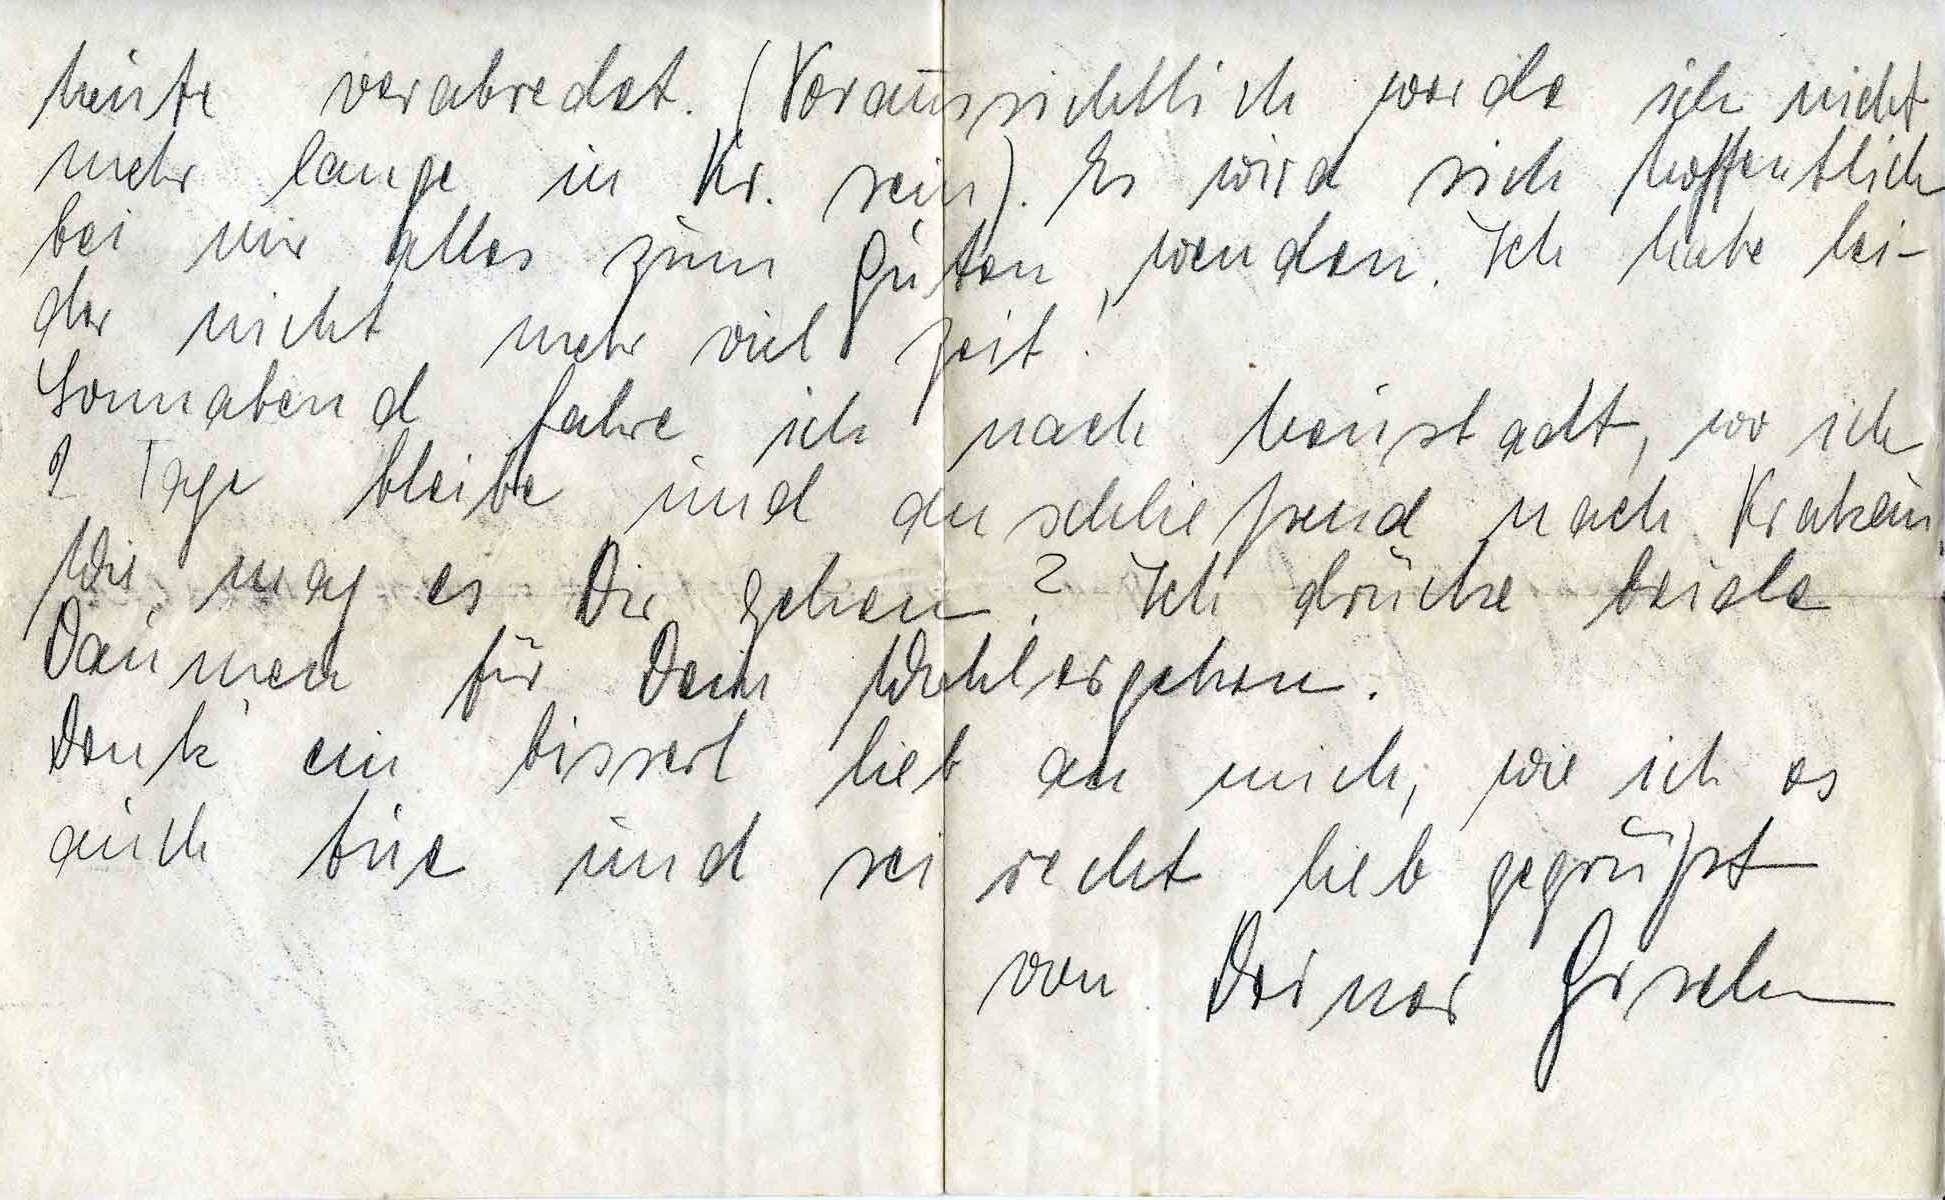 heute verabredet. (Voraussichtlich werde ich nicht
mehr lange in Kr. sein). Es wird sich hoffentlich
bei mir alles zum Guten wenden. Ich habe lei-
der nicht mehr viel Zeit!
Sonnabend fahre ich nach Neustadt, wo ich
2 Tage bleibe und anschließend nach Krakau.
Wie mag es Dir gehen? Ich drücke beide
Daumen für Dein Wohlergehen.
Denk' ein bisserl lieb an mich, wie ich es
auch tue und sei recht lieb gegrüßt
von Deiner Gisela